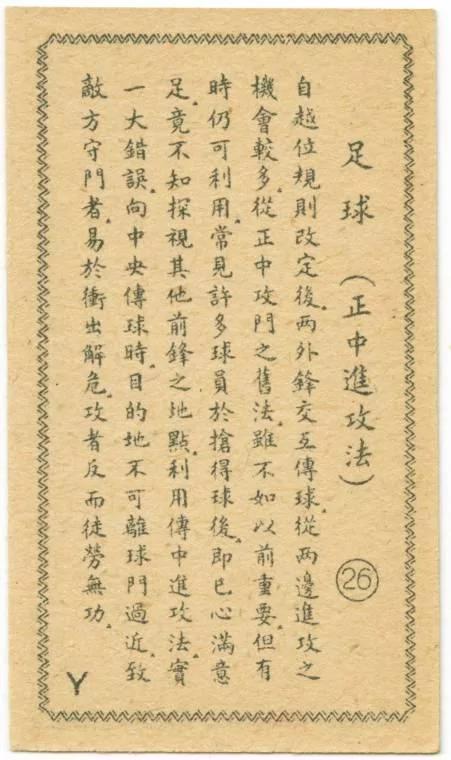 足球(正中進攻法)
26
自越位規則改定後。两外鋒交互傳球。從两邊進攻之
機會較多。從正中攻門之舊法。雖不如以前重要。但有
時仍可利用。常見許多球員於搶得球後。即已心滿意
足。竟不知探視其他前鋒之地點。利用傳中進攻法。實
一大錯誤。向中央傳球時。目的地不可離球門過近。致
敵方守門者。易於衝出解危。攻者反而徒勞無功。
Y